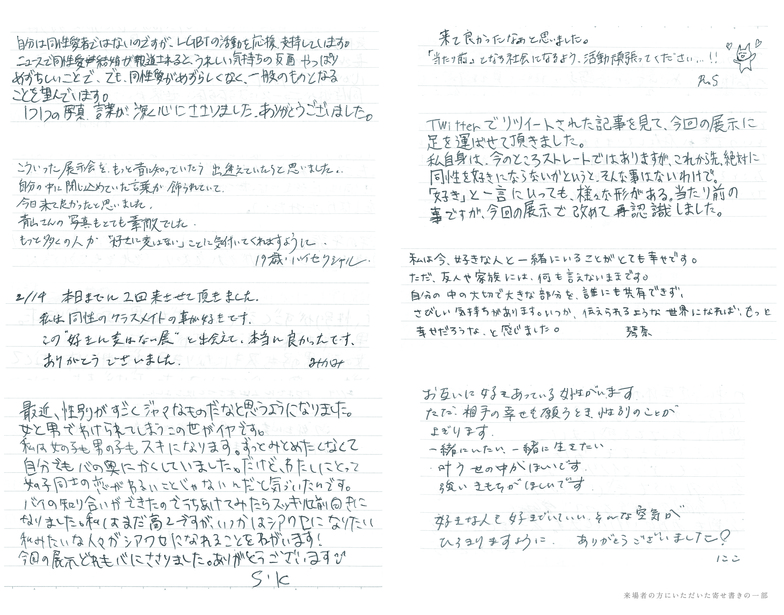 自分は同性愛者ではないのですが、LGBTの活動を応援、支持しています。
ニュースで同性愛結婚が報道されると、うれしい気持ちの反面 やっぱり
めずらしいことで、でも、同性愛がめずらしくなく、一般のものとなる
ことを望んでいます。
1つ1つの写真、言葉が、深く心にささりました。ありがとうございました。
こういった展示会を、もっと昔に知っていたら 出逢えていたらと思いました。
自分の中に閉じ込めていた言葉が飾られていて、
今日来て良かったと思いました。
青山さんの写真もとても素敵でした。
もっと多くの人が"好きに変はない"ことに気付いてくれますように。
19歳・バイセクシャル
2/19 本日までに2回来させて頂きました。
私は同性のクラスメイトの事が好きです。
この"好きに変はない展"と出会えて、本当に良かったです。
ありがとうございました。
みかみ
最近、性別がすごくジャマなものだなと思うようになりました。
女と男でわけられてしまうこの世がイヤです。
私は女の子も男の子もスキになります。ずっとみとめたくなくて
自分でも心の奥にかくしていました。だけど、わたしにとって
女の子同士の恋がわるいことじゃないんだと気づいたのです。
バイの知り合いができたのでうちあけてみたらスッキリ前向きに
なりました。私はまだ高2ですが、いつかはシアワセになりたい
私みたいな人々がシアワセになれることをねがいます!
今回の展示どれも心にささりました。ありがとうございます
S・K
来て良かったなぁと思いました。
「当たり前」になる社会になるよう、活動頑張ってください…!!
R.S
Twitterでリツイートされた記事を見て、今回の展示に
足を運ばせて頂きました。
私自身は、今のところストレートではありますが、これから先、絶対に
同性を好きにならないかというと、そんな事はないわけで。
「好き」と一言にいっても、様々な形がある。当たり前の
事ですが、今回の展示で改めて再認識しました。
私は今、好きな人と一緒にいることがとても幸せです。
ただ、友人や家族には、何も言えないままです。
自分の中の大切で大きな部分を、誰にも共有できず、
さびしい気持ちがあります。いつか、伝えられるような世界になれば、もっと
幸せだろうな、と感じました。
お互いに好きあっている女性がいます
ただ、相手の幸せを願うとき、性別のことが
よぎります。
一緒にいたい、一緒に生きたい
叶う世の中がほしいです
強いきもちがほしいです
好きな人を好きでいていい、そんな空気が
ひろまりますように。 ありがとうございました♡
にこ
来場者の方にいただいた寄せ書きの一部